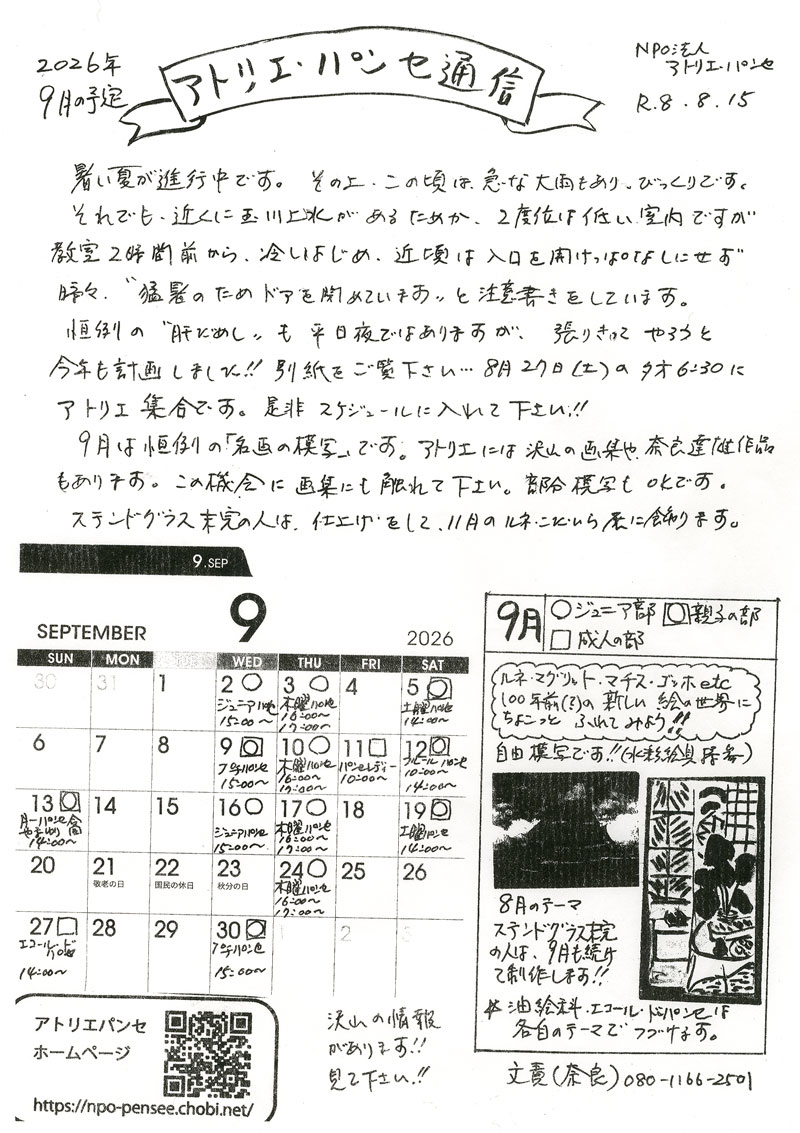 2026年
9月の予定
アトリエ・パンセ通信
NPO法人
アトリエ・パンセ
R.8.8.15
暑い夏が進行中です。その上、この頃は、急な大雨もあり、びっくりです。
それでも、近くに玉川上水があるためか、2度位は低い室内ですが
教室2時間前から、冷しはじめ、近頃は入口を開けっぱなしにせず
時々、"猛暑のためドアを閉めています"と注意書きをしています。
恒例の"肝だめし"も平日夜ではありますが、張りきって やろうと
今年も計画しました!! 別紙をご覧下さい…8月27日(土)の夕方6:30に
アトリエ集合です。是非スケジュールに入れて下さい!!
9月は恒例の「名画の模写」です。アトリエには沢山の画集や、奈良達雄作品
もあります。この機会に画集にも触れて下さい。部分模写もOKです。
ステンドグラス未完の人は、仕上げをして、11月のルネこだいら展に飾ります。
9.SEP
SEPTEMBER
9
2026
SUN MON WED THU FRI SAT
30 31 1 2○ 3○ 4 5
ジュニアパンセ
15:00〜
木曜パンセ
16:00〜
17:00〜
土曜パンセ
14:00〜
6 7 8 9 10○ 11□ 12
プチパンセ
15:00〜
木曜パンセ
16:00〜
17:00〜
パンセレディー
10:00〜
10:00〜
14:00〜
13 14 15 16○ 17○ 18 19
14:00〜
ジュニアパンセ
15:00〜
木曜パンセ
16:00〜
17:00〜
土曜パンセ
14:00〜
20 21 22 23 24○ 25 26
敬老の日
国民の休日
秋分の日
木曜パンセ
16:00〜
17:00〜
27□ 28 29 30 1 2 3
エコール・ド・
パンセ
14:00〜
プチパンセ
15:00〜
9月
○ジュニア部 親子の部
□成人の部
ルネ・マグリット・マチス・ゴッホetc
100年前(?)の新しい絵の世界に
ちょこっと ふれてみよう!!
自由模写です!!(水彩絵具持参)
8月のテーマ
ステンドグラス未完
の人は、9月も続け
て制作します!!
※油絵科・エコール・ド・パンセは
各自のテーマでつづけます。
アトリエパンセ
ホームページ
https://npo-pensee.chobi.net/
沢山の情報
があります!!
見て下さい!!
文責(奈良)080-1166-2501